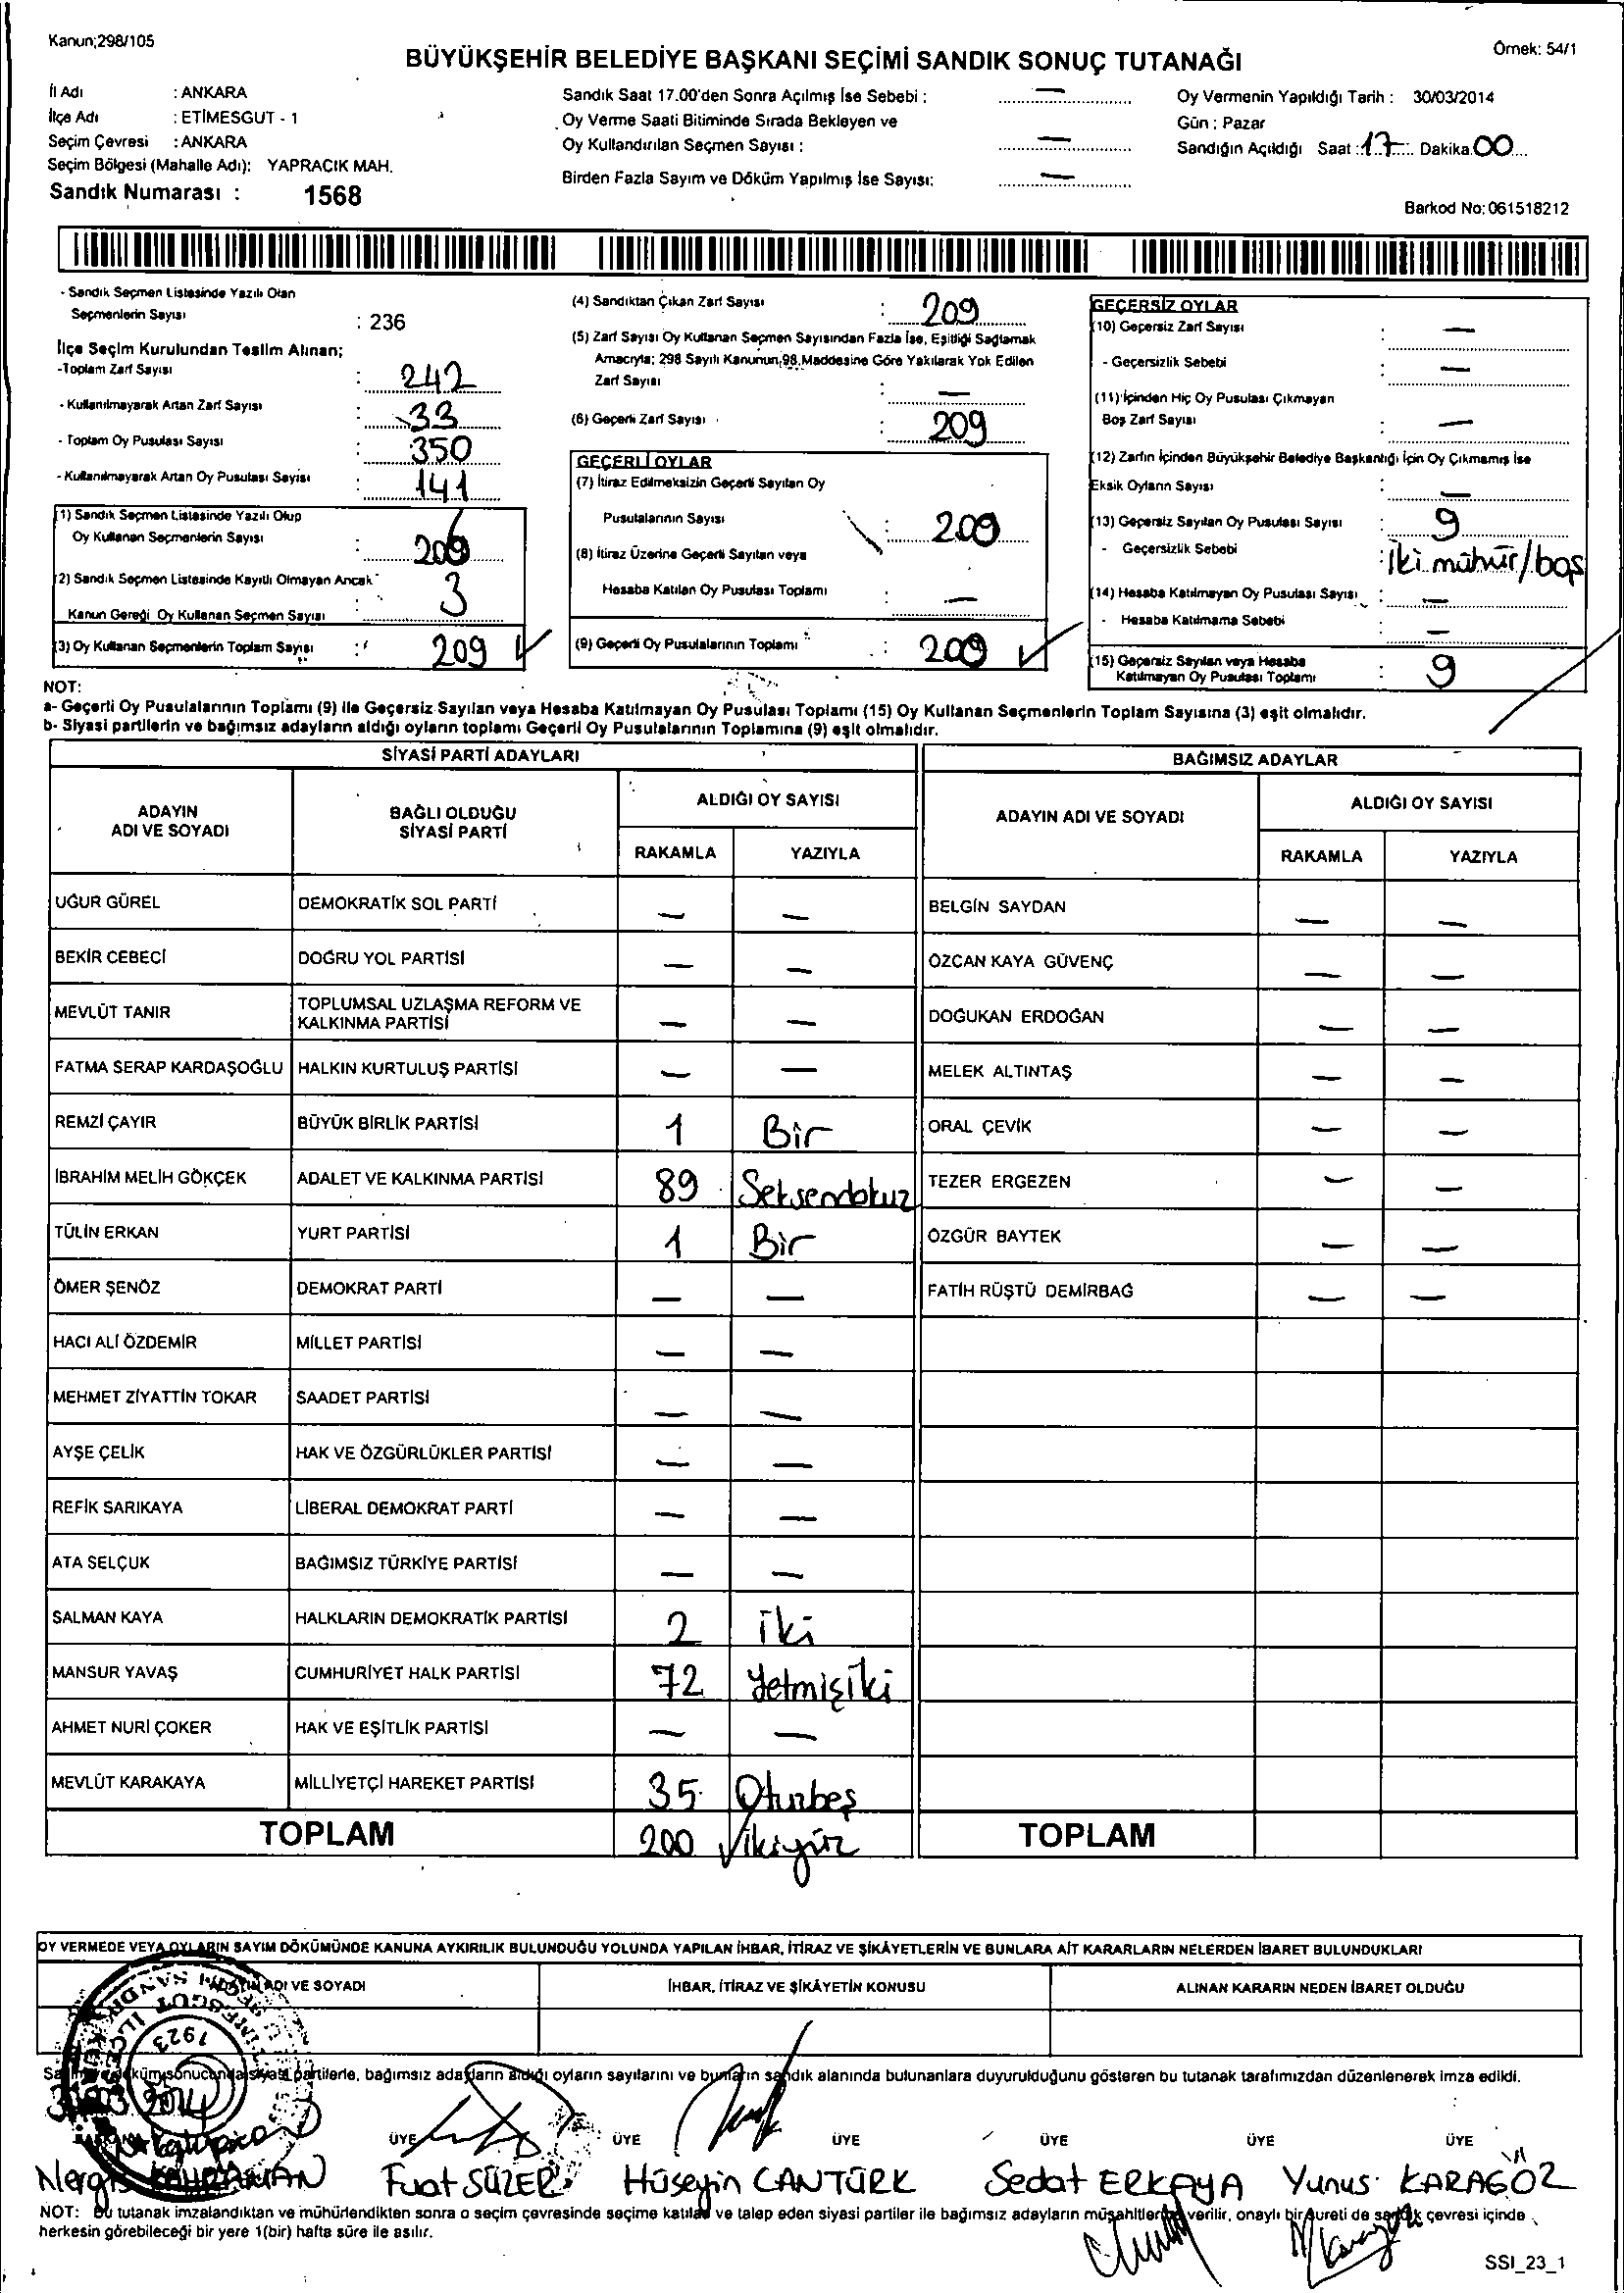 Kanun;298/105
Örnek: 54/1
BÜYÜKŞEHİR BELEDİYE BAŞKANI SEÇİMİ SANDIK SONUÇ TUTANAĞI
İl Adı : ANKARA
İlçe Adı : ETİMESGUT - 1
Seçim Çevresi : ANKARA
Seçim Bölgesi (Mahalle Adı): YAPRACIK MAH.
Sandık Numarası : 1568
Sandık Saat 17.00'den Sonra Açılmış İse Sebebi : —
Oy Verme Saati Bitiminde Sırada Bekleyen ve
Oy Kullandırılan Seçmen Sayısı : —
Birden Fazla Sayım ve Döküm Yapılmış İse Sayısı: —
Oy Vermenin Yapıldığı Tarih : 30/03/2014
Gün : Pazar
Sandığın Açıldığı Saat : 17 Dakika 00
Barkod No: 061518212
- Sandık Seçmen Listesinde Yazılı Olan
Seçmenlerin Sayısı : 236
İlçe Seçim Kurulundan Teslim Alınan;
-Toplam Zarf Sayısı : 242
- Kullanılmayarak Artan Zarf Sayısı : 33
- Toplam Oy Pusulası Sayısı : 350
- Kullanılmayarak Artan Oy Pusulası Sayısı : 141
(1) Sandık Seçmen Listesinde Yazılı Olup
Oy Kullanan Seçmenlerin Sayısı : 206
(2) Sandık Seçmen Listesinde Kayıtlı Olmayan Ancak
Kanun Gereği Oy Kullanan Seçmen Sayısı : 3
(3) Oy Kullanan Seçmenlerin Toplam Sayısı : 209
(4) Sandıktan Çıkan Zarf Sayısı : 209
(5) Zarf Sayısı Oy Kullanan Seçmen Sayısından Fazla İse, Eşitliği Sağlamak
Amacıyla; 298 Sayılı Kanunun 98.Maddesine Göre Yakılarak Yok Edilen
Zarf Sayısı : —
(6) Geçerli Zarf Sayısı : 209
GEÇERLİ OYLAR
(7) İtiraz Edilmeksizin Geçerli Sayılan Oy
Pusulalarının Sayısı : 209
(8) İtiraz Üzerine Geçerli Sayılan veya
Hesaba Katılan Oy Pusulası Toplamı : —
(9) Geçerli Oy Pusulalarının Toplamı : 209
GEÇERSİZ OYLAR
(10) Geçersiz Zarf Sayısı : —
- Geçersizlik Sebebi : —
(11) İçinden Hiç Oy Pusulası Çıkmayan
Boş Zarf Sayısı : —
(12) Zarfın İçinden Büyükşehir Belediye Başkanlığı İçin Oy Çıkmamış İse
Eksik Oyların Sayısı : —
(13) Geçersiz Sayılan Oy Pusulası Sayısı : 9
- Geçersizlik Sebebi : İki mühür/boş
(14) Hesaba Katılmayan Oy Pusulası Sayısı : —
- Hesaba Katılmama Sebebi : —
(15) Geçersiz Sayılan veya Hesaba
Katılmayan Oy Pusulası Toplamı : 9
NOT:
a- Geçerli Oy Pusulalarının Toplamı (9) ile Geçersiz Sayılan veya Hesaba Katılmayan Oy Pusulası Toplamı (15) Oy Kullanan Seçmenlerin Toplam Sayısına (3) eşit olmalıdır.
b- Siyasi partilerin ve bağımsız adayların aldığı oyların toplamı Geçerli Oy Pusulalarının Toplamına (9) eşit olmalıdır.
SİYASİ PARTİ ADAYLARI
ADAYIN ADI VE SOYADI
BAĞLI OLDUĞU SİYASİ PARTİ
ALDIĞI OY SAYISI
RAKAMLA YAZIYLA
UĞUR GÜREL DEMOKRATİK SOL PARTİ — —
BEKİR CEBECİ DOĞRU YOL PARTİSİ — —
MEVLÜT TANIR TOPLUMSAL UZLAŞMA REFORM VE KALKINMA PARTİSİ — —
FATMA SERAP KARDAŞOĞLU HALKIN KURTULUŞ PARTİSİ — —
REMZİ ÇAYIR BÜYÜK BİRLİK PARTİSİ 1 Bir
İBRAHİM MELİH GÖKÇEK ADALET VE KALKINMA PARTİSİ 89 Seksendokuz
TÜLİN ERKAN YURT PARTİSİ 1 Bir
ÖMER ŞENÖZ DEMOKRAT PARTİ — —
HACI ALİ ÖZDEMİR MİLLET PARTİSİ — —
MEHMET ZİYATTİN TOKAR SAADET PARTİSİ — —
AYŞE ÇELİK HAK VE ÖZGÜRLÜKLER PARTİSİ — —
REFİK SARIKAYA LİBERAL DEMOKRAT PARTİ — —
ATA SELÇUK BAĞIMSIZ TÜRKİYE PARTİSİ — —
SALMAN KAYA HALKLARIN DEMOKRATİK PARTİSİ 2 İki
MANSUR YAVAŞ CUMHURİYET HALK PARTİSİ 72 Yetmişİki
AHMET NURİ ÇOKER HAK VE EŞİTLİK PARTİSİ — —
MEVLÜT KARAKAYA MİLLİYETÇİ HAREKET PARTİSİ 35 Otuzbeş
TOPLAM 200 ikiyüz
BAĞIMSIZ ADAYLAR
ADAYIN ADI VE SOYADI
ALDIĞI OY SAYISI
RAKAMLA YAZIYLA
BELGİN SAYDAN — —
ÖZCAN KAYA GÜVENÇ — —
DOĞUKAN ERDOĞAN — —
MELEK ALTINTAŞ — —
ORAL ÇEVİK — —
TEZER ERGEZEN — —
ÖZGÜR BAYTEK — —
FATİH RÜŞTÜ DEMİRBAĞ — —
TOPLAM
OY VERMEDE VEYA OYLARIN SAYIM DÖKÜMÜNDE KANUNA AYKIRILIK BULUNDUĞU YOLUNDA YAPILAN İHBAR, İTİRAZ VE ŞİKÂYETLERİN VE BUNLARA AİT KARARLARIN NELERDEN İBARET BULUNDUKLARI
ADI VE SOYADI
İHBAR, İTİRAZ VE ŞİKÂYETİN KONUSU
ALINAN KARARIN NEDEN İBARET OLDUĞU
1923
sonucunda siyasi partilerle, bağımsız adayların aldığı oyların sayılarını ve bunların sandık alanında bulunanlara duyurulduğunu gösteren bu tutanak tarafımızdan düzenlenerek imza edildi.
ÜYE ÜYE ÜYE ÜYE ÜYE ÜYE
Nergis KAHRAMAN Fuat SÜZER Hüseyin CANTÜRK Sedat ERKAYA Yunus KARAGÖZ
NOT: Bu tutanak imzalandıktan ve mühürlendikten sonra o seçim çevresinde seçime katılan ve talep eden siyasi partiler ile bağımsız adayların müşahitlerine verilir, onaylı bir sureti de sandık çevresi içinde
herkesin görebileceği bir yere 1(bir) hafta süre ile asılır.
SSI_23_1